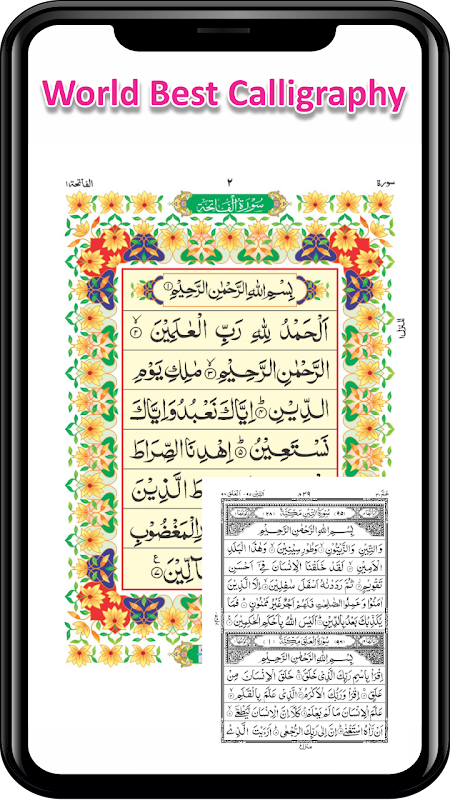 World Best Calligraphy
سورة ٢ الفاتحة ١
سُوْرَةُ الْفَاتِحَةِ
بِسْمِ اللّٰهِ الرَّحْمٰنِ الرَّحِيْمِ ۝١
اَلْحَمْدُ لِلّٰهِ رَبِّ الْعٰلَمِيْنَ ۝٢
الرَّحْمٰنِ الرَّحِيْمِ ۝٣ مٰلِكِ يَوْمِ
الدِّيْنِ ۝٤ اِيَّاكَ نَعْبُدُ وَاِيَّاكَ
نَسْتَعِيْنُ ۝٥ اِهْدِنَا الصِّرَاطَ
الَّذِيْنَ
الْمَغْضُوْبِ
٨٣٩
سُوْرَةُ التِّيْنِ مَكِّيَّةٌ
بِسْمِ اللّٰهِ الرَّحْمٰنِ الرَّحِيْمِ
وَالتِّيْنِ وَالزَّيْتُوْنِ ۝١ وَطُوْرِ سِيْنِيْنَ ۝٢ وَهٰذَا الْبَلَدِ
الْاَمِيْنِ ۝٣ لَقَدْ خَلَقْنَا الْاِنْسَانَ فِيْۤ اَحْسَنِ
تَقْوِيْمٍ ۝٤ ثُمَّ رَدَدْنٰهُ اَسْفَلَ سٰفِلِيْنَ ۝٥ اِلَّا الَّذِيْنَ
اٰمَنُوْا وَعَمِلُوا الصّٰلِحٰتِ فَلَهُمْ اَجْرٌ غَيْرُ مَمْنُوْنٍ ۝٦ فَمَا
يُكَذِّبُكَ بَعْدُ بِالدِّيْنِ ۝٧ اَلَيْسَ اللّٰهُ بِاَحْكَمِ الْحٰكِمِيْنَ ۝٨
سُوْرَةُ الْعَلَقِ مَكِّيَّةٌ
بِسْمِ اللّٰهِ الرَّحْمٰنِ الرَّحِيْمِ
اِقْرَاْ بِاسْمِ رَبِّكَ الَّذِيْ خَلَقَ ۝١ خَلَقَ الْاِنْسَانَ مِنْ
عَلَقٍ ۝٢ اِقْرَاْ وَرَبُّكَ الْاَكْرَمُ ۝٣ الَّذِيْ عَلَّمَ بِالْقَلَمِ ۝٤
عَلَّمَ الْاِنْسَانَ مَا لَمْ يَعْلَمْ ۝٥ كَلَّاۤ اِنَّ الْاِنْسَانَ لَيَطْغٰۤى ۝٦
اَنْ رَّاٰهُ اسْتَغْنٰى ۝٧ اِنَّ اِلٰى رَبِّكَ الرُّجْعٰى ۝٨ اَرَءَيْتَ الَّذِيْ